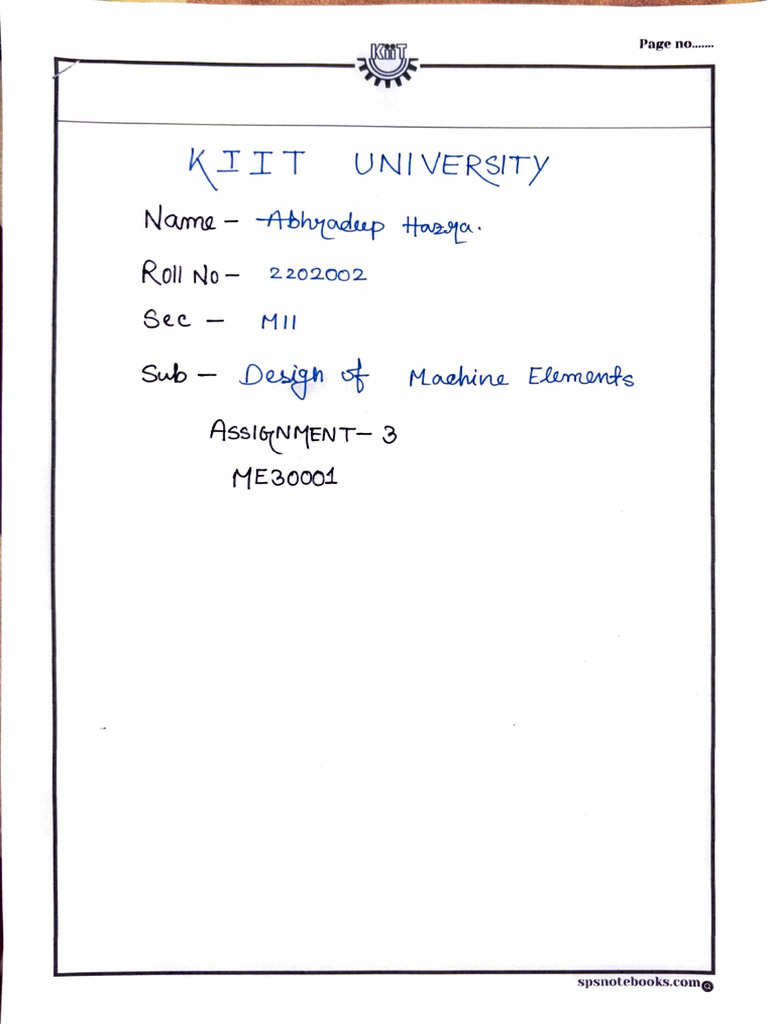 Page no.......
KiiT
KIIT UNIVERSITY
Name - Abhradeep Hazra.
Roll No - 2202002
Sec - M11
Sub - Design of Machine Elements
ASSIGNMENT - 3
ME30001
spsnotebooks.com